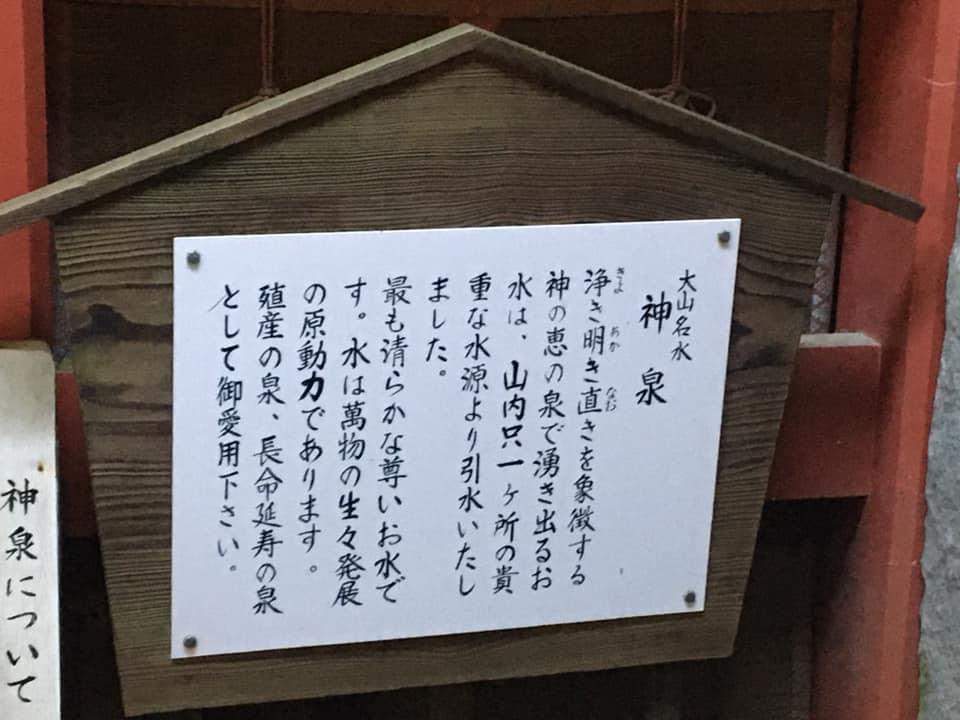 大山名水
神泉
浄き明き直きを象徴する
神の恵の泉で湧き出るお
水は、山内只一ヶ所の貴
重な水源より引水いたし
ました。
最も清らかな尊いお水で
す。水は萬物の生々発展
の原動力であります。
殖産の泉、長命延寿の泉
として御愛用下さい。
きよ
あか
なお
神泉について